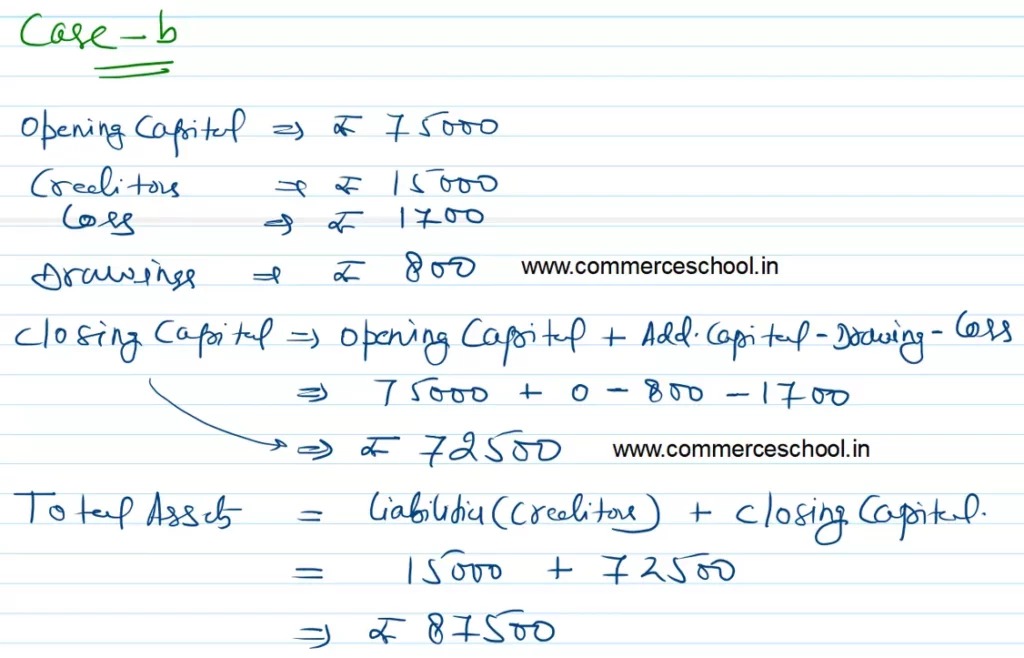 Case - b
Opening Capital ⇒ ₹ 75000
Creditors ⇒ ₹ 15000
Loss ⇒ ₹ 1700
Drawings ⇒ ₹ 800 www.commerceschool.in
Closing Capital ⇒ Opening Capital + Add. Capital - Drawing - Loss
⇒ 75000 + 0 - 800 - 1700
⇒ ₹ 72500 www.commerceschool.in
Total Assets = Liabilities (Creditors) + Closing Capital.
= 15000 + 72500
⇒ ₹ 87500